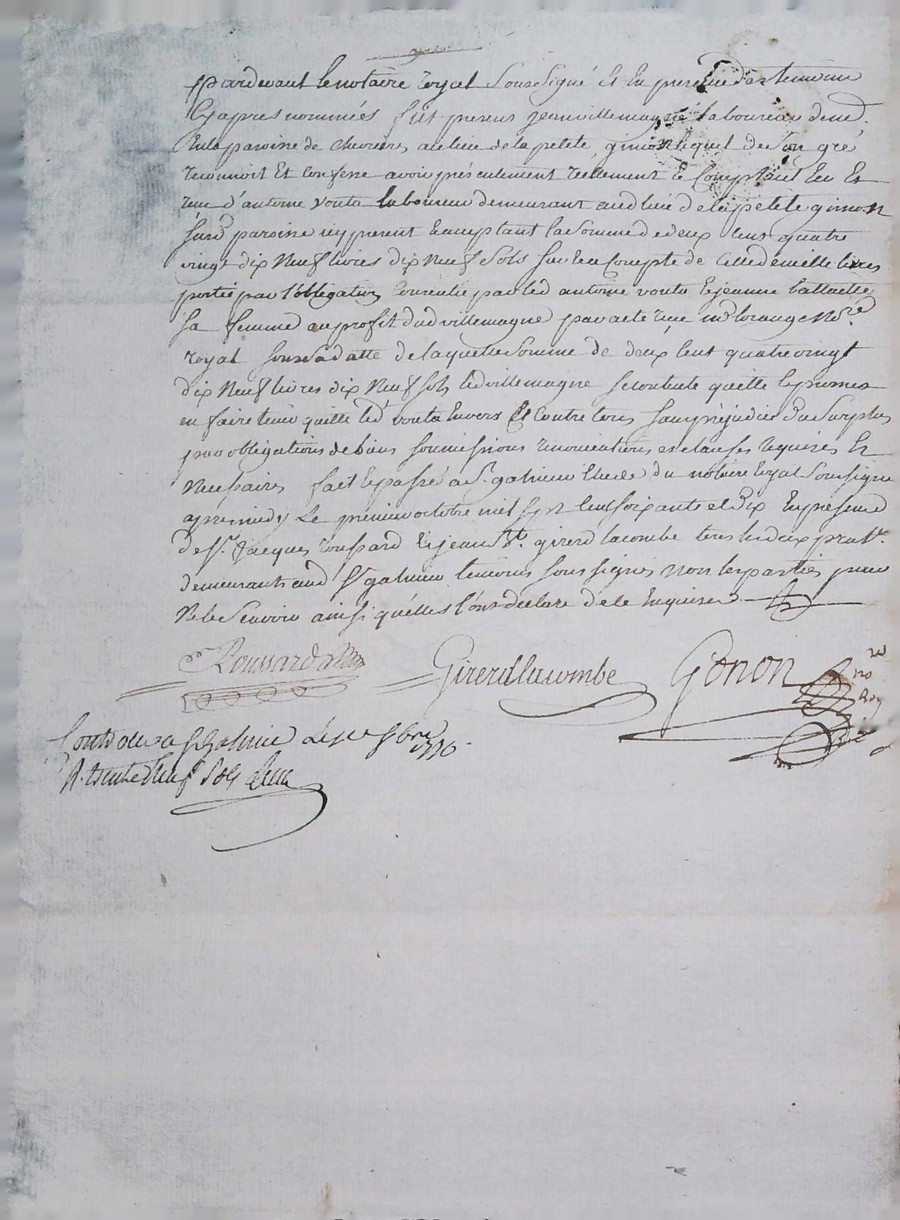 pardevant le notaire royal soussigné et en presence des temoins
cy apres nommés fut present jean villemagne laboureur dem.t
en la paroisse de chevrieres au lieu de la petite gimon lequel de son gré
reconnoit et confesse avoir présentement reellement et comptant eu et
reçu d'antoine vouta laboureur demeurant aud lieu de la petite gimon
susd paroisse icy present et acceptant la somme de deux cent quatre
vingt dix neuf livres dix neuf sols sur et en compte de celle de mille livres
portée par l'obligation consentie par led antoine vouta et jeanne bataille
sa femme au profit dud villemagne par acte reçu m.e no.re
royal sous sa datte de laquelle somme de deux cent quatre vingt
dix neuf livres dix neuf sols led villemagne se contente quitte et promet
en faire tenir quitte led vouta envers et contre tous sans préjudice du surplus
par obligations de biens soumissions renonciations et clauses requises et
necessaires fait et passé a st. galmier etude du notaire royal soussigné
apres midy le premier octobre mil sept cent soixante et dix en presence
de sr. jacques roussard et jean bte. girerd lacombe tous les deux prat.
demeurants aud st galmier temoins soussignés non les parties pour
ne le scavoir ainsi qu'elles l'ont declaré de ce enquises
Roussard
Girerd lacombe
Gonon
no.re
roy
Controlé a st Galmier le 8bre 1770
R. trente neuf sols